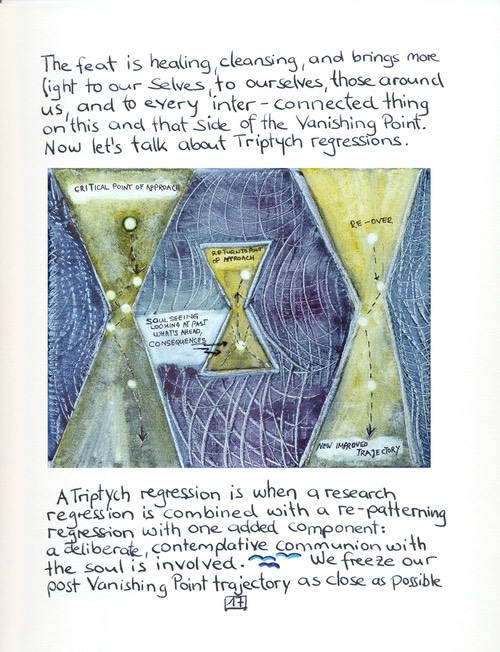 The feat is healing, cleansing, and brings more
light to our Selves, to ourselves, those around
us, and to every inter-connected thing
on this and that side of the Vanishing Point.
Now let's talk about Triptych regressions.
CRITICAL POINT OF APPROACH
RETURN TO POINT
OF APPROACH
RE-OVER
SOUL SEEING
LOOKING AT PAST
WHAT'S AHEAD,
CONSEQUENCES
NEW IMPROVED
TRAJECTORY
A Triptych regression is when a research
regression is combined with a re-patterning
regression with one added component:
a deliberate, contemplative communion with
the soul is involved. We freeze our
post Vanishing Point trajectory as close as possible
17